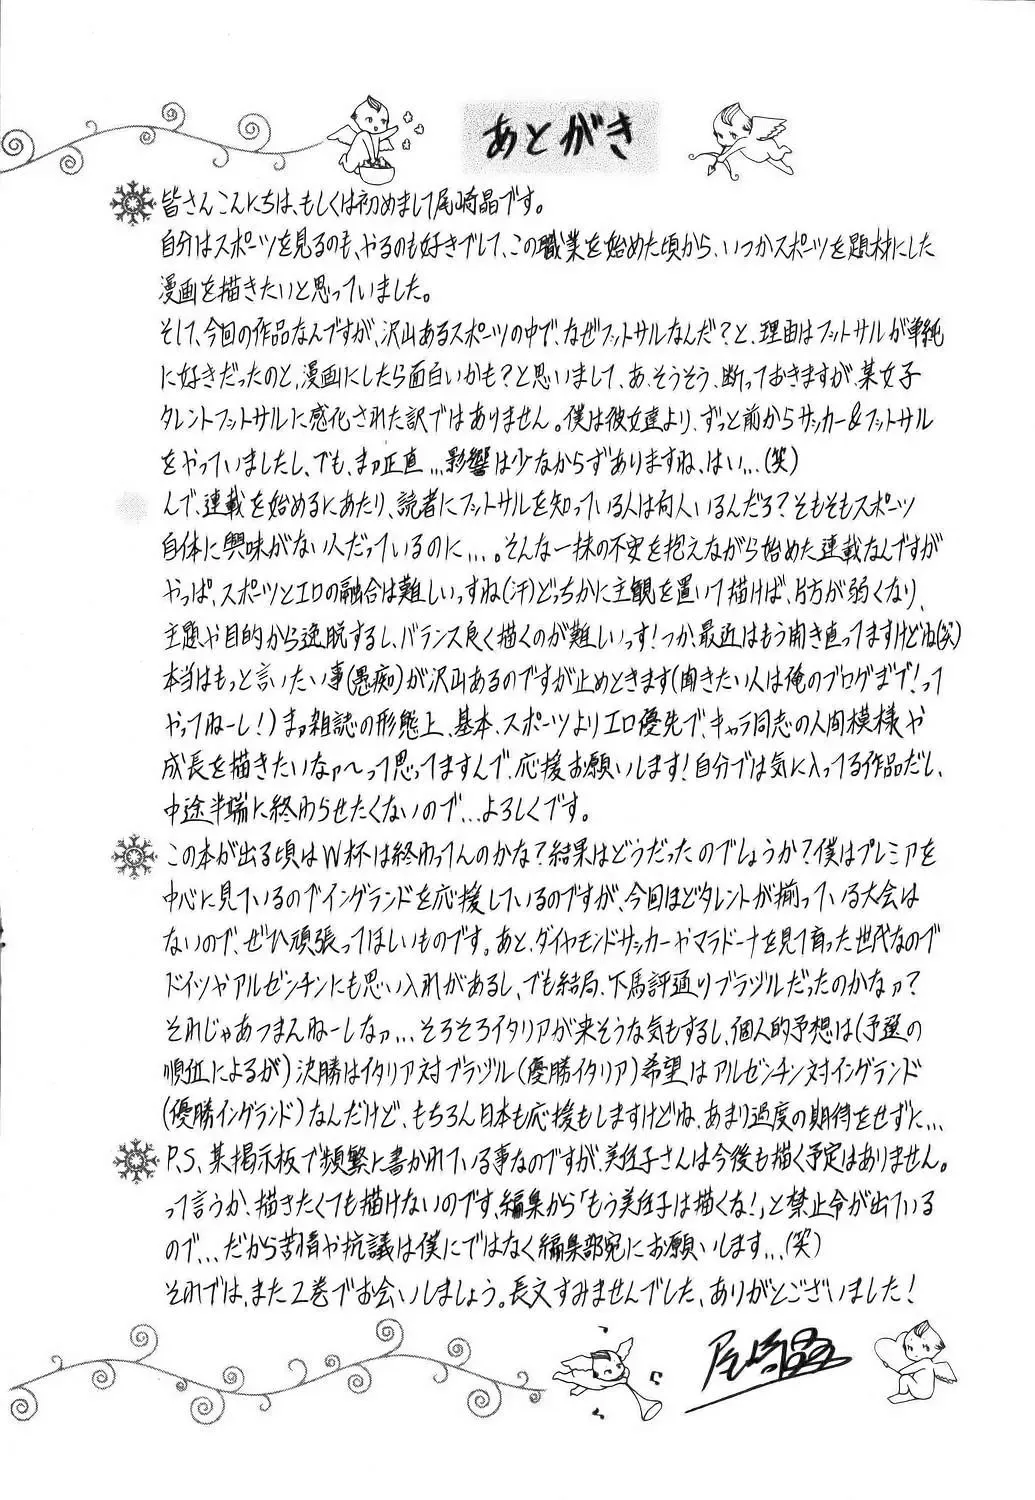 あとがき
皆さんこんにちは、もしくは初めまして尾崎晶です。
自分はスポーツを見るのも、やるのも好きでして、この職業を始めた頃から、いつかスポーツを題材にした
漫画を描きたいと思っていました。
そして、今回の作品なんですが、沢山あるスポーツの中で、なぜフットサルなんだ?と、理由はフットサルが単純
に好きだったのと、漫画にしたら面白いかも?と思いまして、あ、そうそう、断っておきますが、某女子
タレントフットサルに感化された訳ではありません。僕は彼女達より、ずっと前からサッカー&フットサル
をやっていましたし、でも、まァ正直…影響は少なからずありますね、はい…(笑)
んで、連載を始めるにあたり、読者にフットサルを知っている人は何人いるんだろ?そもそもスポーツ
自体に興味がない人だっているのに…。そんな一抹の不安を抱えながら始めた連載なんですが
やっぱ、スポーツとエロの融合は難しいっすね(汗)どっちかに主観を置いて描けば、片方が弱くなり、
主題や目的から逸脱するし、バランス良く描くのが難しいっす!つか、最近はもう開き直ってますけどね(笑)
本当はもっと言いたい事(愚痴)が沢山あるのですが止めときます(聞きたい人は俺のブログまで!って
やってねーし!)まァ雑誌の形態上、基本、スポーツよりエロ優先で、キャラ同志の人間模様や
成長を描きたいなァ〜って思ってますんで、応援お願いします!自分では気に入ってる作品だし、
中途半端に終わらせたくないので…よろしくです。
この本が出る頃はW杯は終わってんのかな?結果はどうだったのでしょうか?僕はプレミアを
中心に見ているのでイングランドを応援しているのですが、今回ほどタレントが揃っている大会は
ないので、ぜひ頑張ってほしいものです。あと、ダイヤモンドサッカーやマラドーナを見て育った世代なので
ドイツやアルゼンチンにも思い入れがあるし、でも結局、下馬評通りブラヅルだったのかなァ?
それじゃあつまんねーしなァ…そろそろイタリアが来そうな気もするし、個人的予想は(予選の
順位によるが)決勝はイタリア対ブラヅル(優勝イタリア)希望はアルゼンチン対イングランド
(優勝イングランド)なんだけど、もちろん日本も応援もしますけどね、あまり過度の期待をせずに…
P.S、某掲示板で頻繁に書かれている事なのですが、美佐子さんは今後も描く予定はありません。
って言うか、描きたくても描けないのです、編集から「もう美佐子は描くな!」と禁止令が出ている
ので…だから苦情や抗議は僕にではなく編集部宛にお願いします…(笑)
それでは、また2巻でお会いしましょう。長文すみませんでした、ありがとございました!
尾崎晶